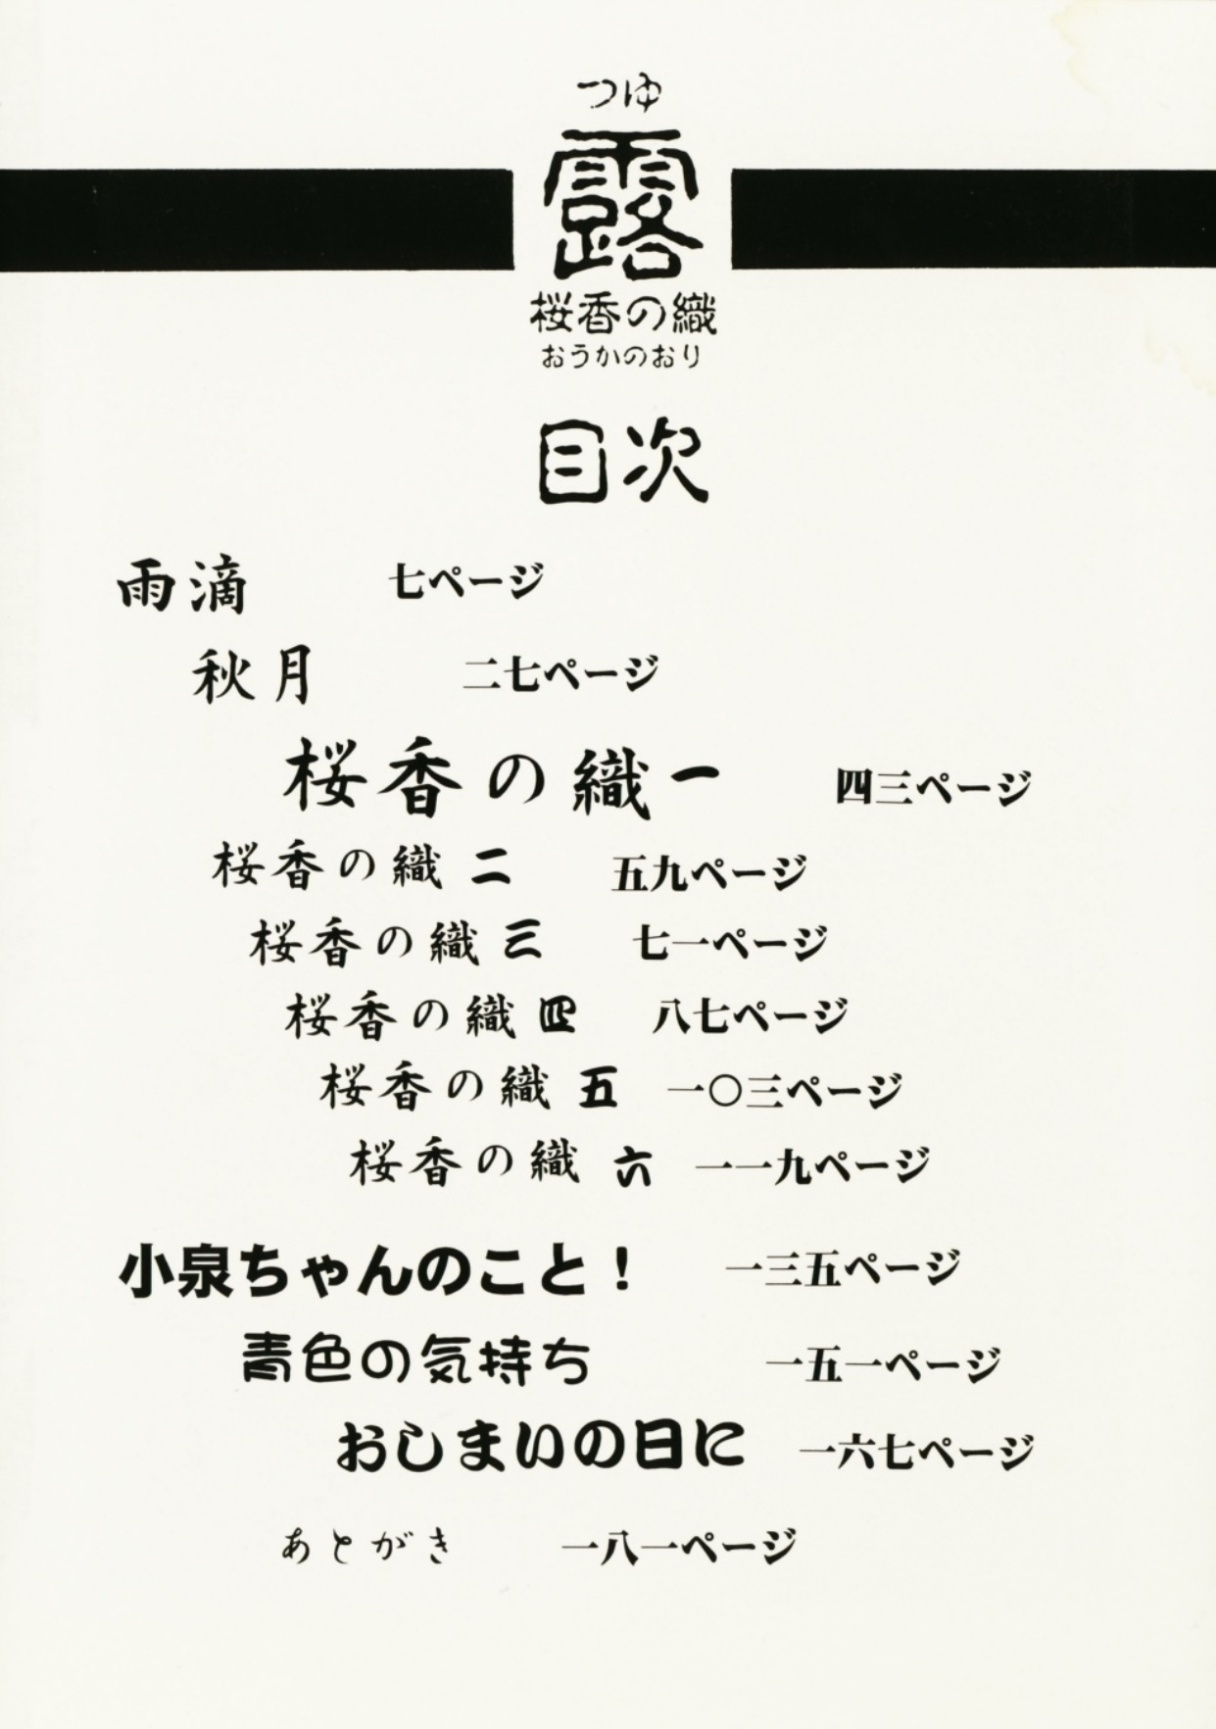 つゆ
露
桜香の織
おうかのおり
目次
雨滴 七ページ
秋月 二七ページ
桜香の織 一 四三ページ
桜香の織 二 五九ページ
桜香の織 三 七一ページ
桜香の織 四 八七ページ
桜香の織 五 一〇三ページ
桜香の織 六 一一九ページ
小泉ちゃんのこと！ 一三五ページ
青色の気持ち 一五一ページ
おしまいの日に 一六七ページ
あとがき 一八一ページ